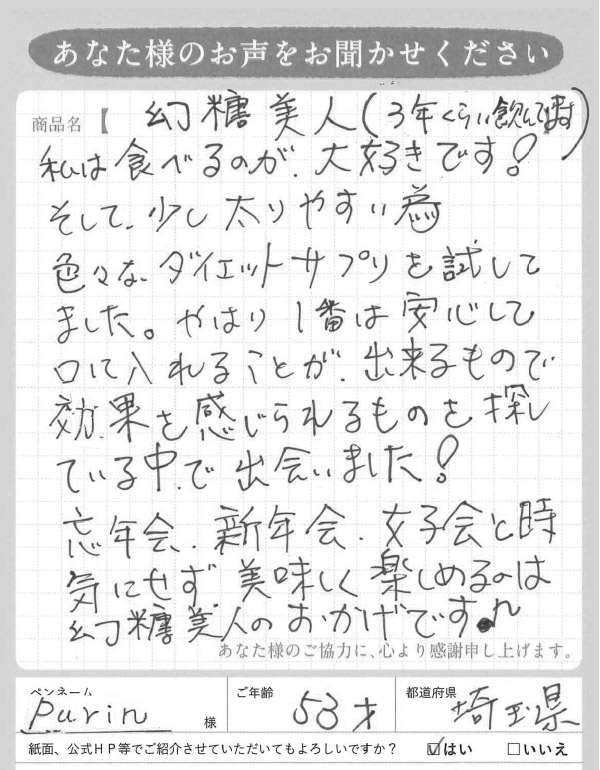 あなた様のお声をお聞かせください
商品名【 幻糖美人(3年くらい飲んでます)
私は食べるのが、大好きです!
そして、少し太りやすい為
色々な、ダイエットサプリを試して
ました。やはり1番は安心して
口に入れることが、出来るもので
効果を感じられるものを探し
ている中で出会いました!
忘年会、新年会、女子会と時
気にせず美味しく楽しめるのは
幻糖美人のおかげです。
あなた様のご協力に、心より感謝申し上げます。
ペンネーム ご年齢 都道府県
Purin 様 53才 埼玉県
紙面、公式HP等でご紹介させていただいてもよろしいですか? ☑はい □いいえ